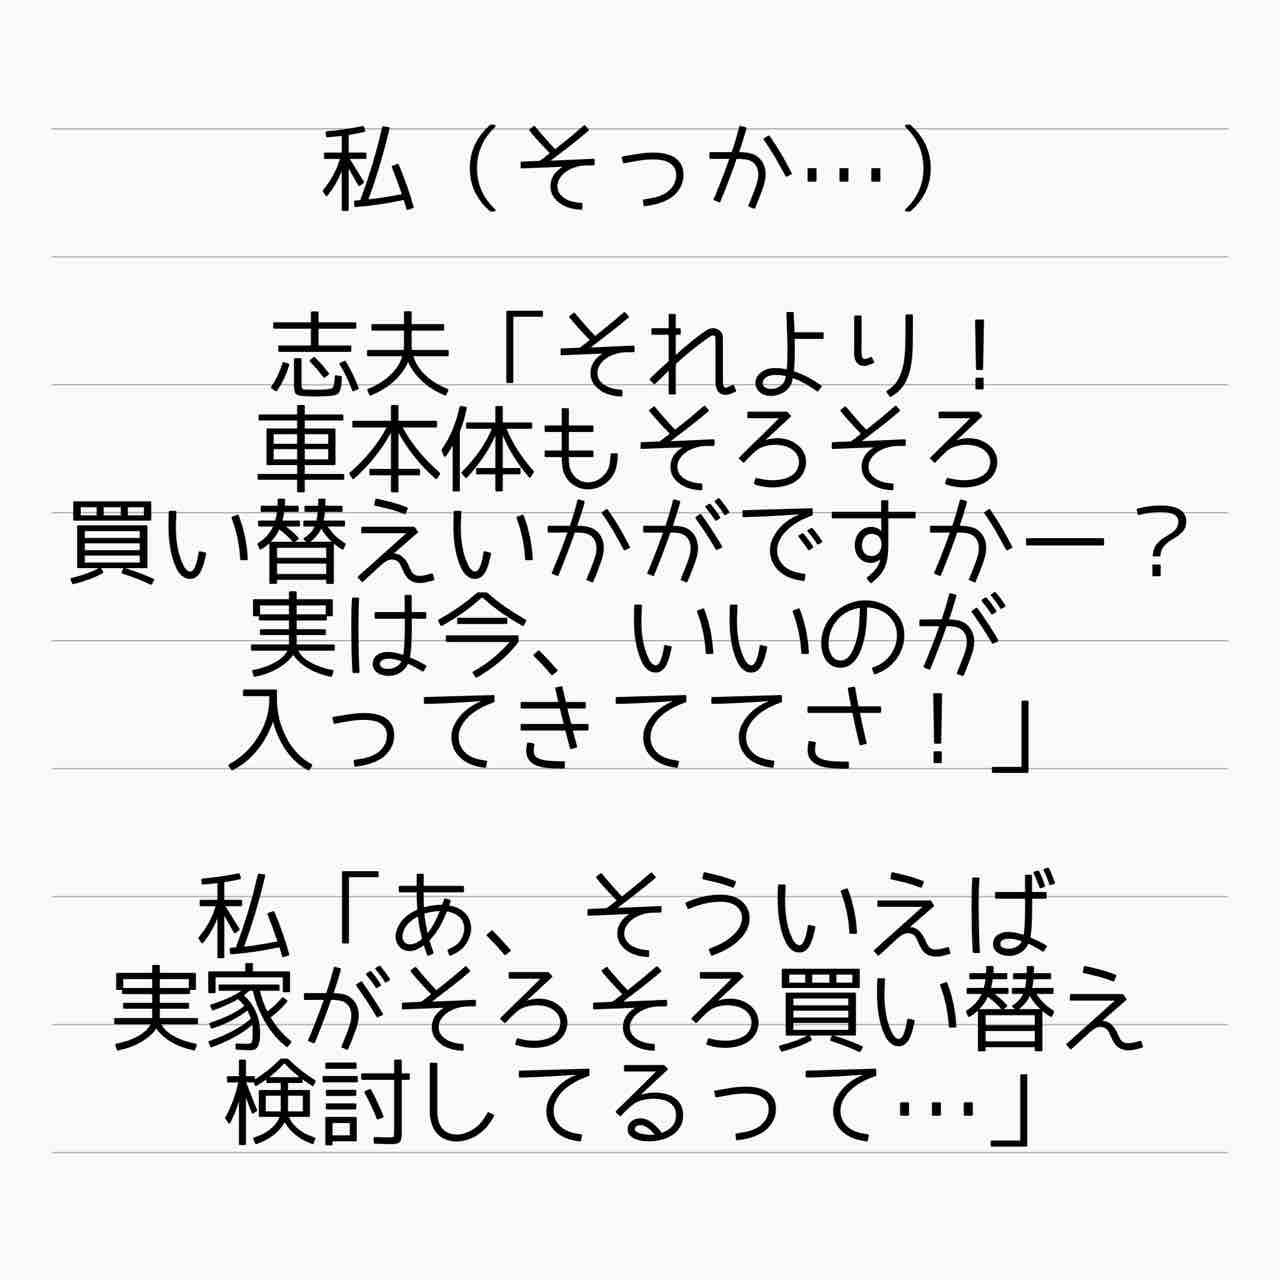 私（そっか…）
志夫「それより！
車本体もそろそろ
買い替えいかがですかー？
実は今、いいのが
入ってきててさ！」
私「あ、そういえば
実家がそろそろ買い替え
検討してるって…」